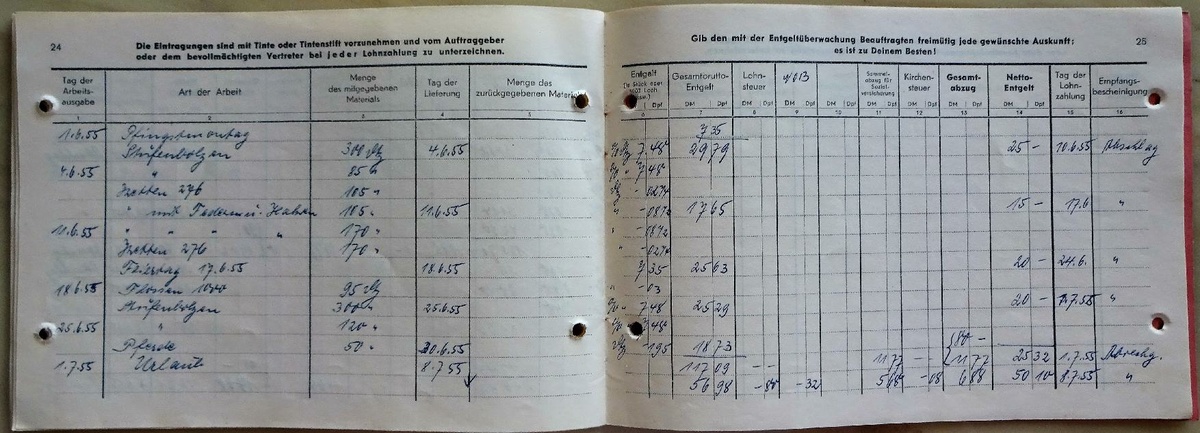 24
Die Eintragungen sind mit Tinte oder Tintenstift vorzunehmen und vom Auftraggeber
oder dem bevollmächtigten Vertreter bei jeder Lohnzahlung zu unterzeichnen.
Tag der Arbeitsausgabe | Art der Arbeit | Menge des mitgegebenen Materials | Tag der Lieferung | Menge des zurückgegebenen Materials
1 2 3 4 5
1.6.55 Pfingstmontag
Stufenbolzen 300 4.6.55
4.6.55 " 85 "
Ketten 276 185 "
" mit Federn u. Haken 185 " 11.6.55
11.6.55 " " " " 170 "
Ketten 276 170 "
Feiertag 17.6.55 18.6.55
18.6.55 Flossen 1000 95
Stufenbolzen 300 " 25.6.55
25.6.55 " 120 "
Pferde 50 " 30.6.55
1.7.55 Urlaub 8.7.55
Gib den mit der Entgeltüberwachung Beauftragten freimütig jede gewünschte Auskunft;
es ist zu Deinem Besten!
25
Entgelt | Gesamtbrutto-Entgelt | Lohnsteuer | NOB | Sammelabzug für Sozialversicherung | Kirchensteuer | Gesamtabzug | Netto-Entgelt | Tag der Lohnzahlung | Empfangsbescheinigung
DM Dpf
6 7 8 9 10 11 12 13 14 15 16
7 35
7.48 29 79 25 – 10.6.55 Abschlag
7.48
-.0274
-.0872 17 65 15 – 17.6 "
-.0872
-.0274
7 35 25 63 20 – 24.6. "
-.03
7.48 25 29 20 – 1.7.55 "
7.48
-.195 18 73 80 –
117 09 - - 11 77 - - 11 77 25 32 1.7.55 Abrechg.
56 98 - 80 - 32 5 68 - 08 6 88 50 10 8.7.55 "